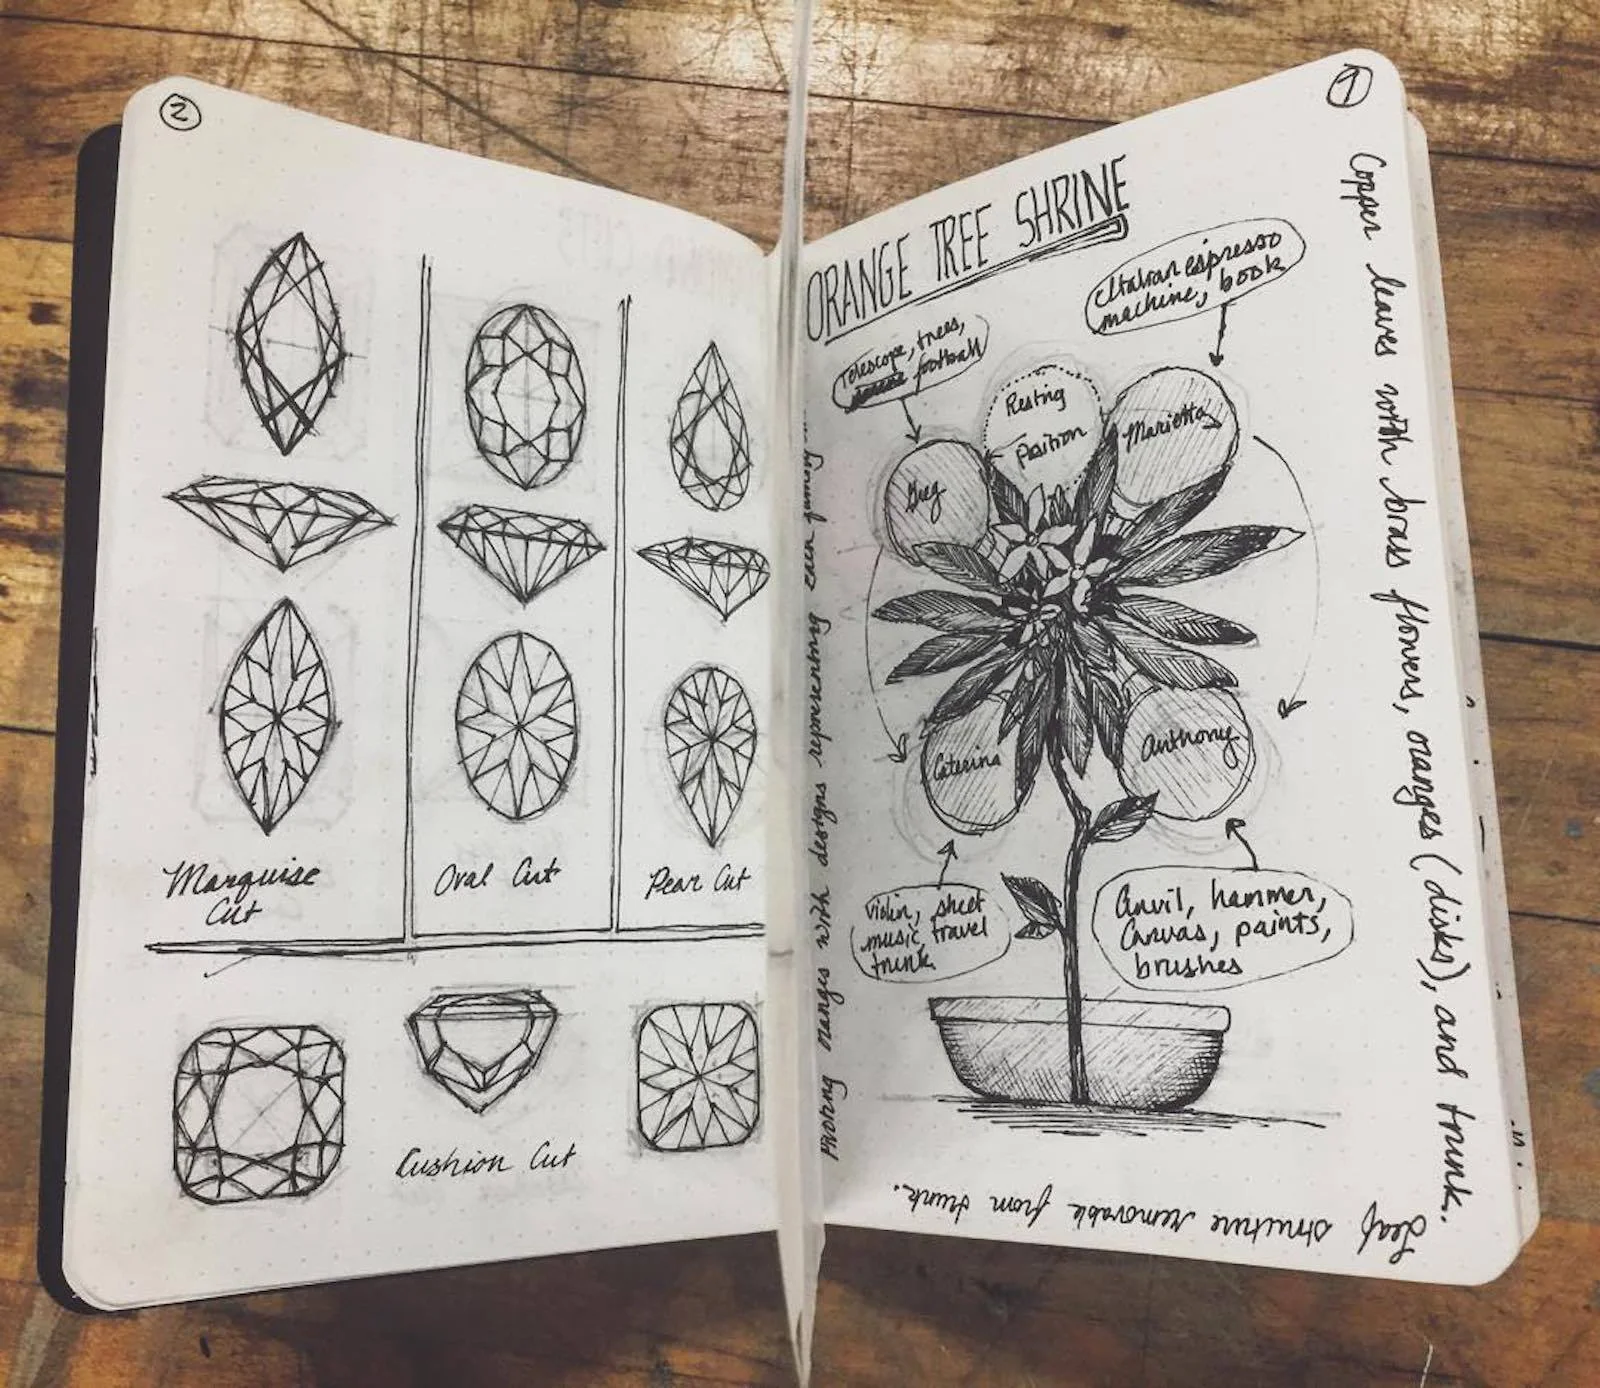 2
Marquise
Cut
Oval Cut
Pear Cut
Cushion Cut
1
ORANGE TREE SHRINE
Telescope, trees,
football
Italian espresso
machine, book
Resting
Position
Marietta
Greg
Caterina
Anthony
violin, sheet
music, travel
trunk
Anvil, hammer,
Canvas, paints,
brushes
Copper leaves with brass flowers, oranges (disks), and trunk.
Leaf structure removable from trunk.
oranges with designs representing each family